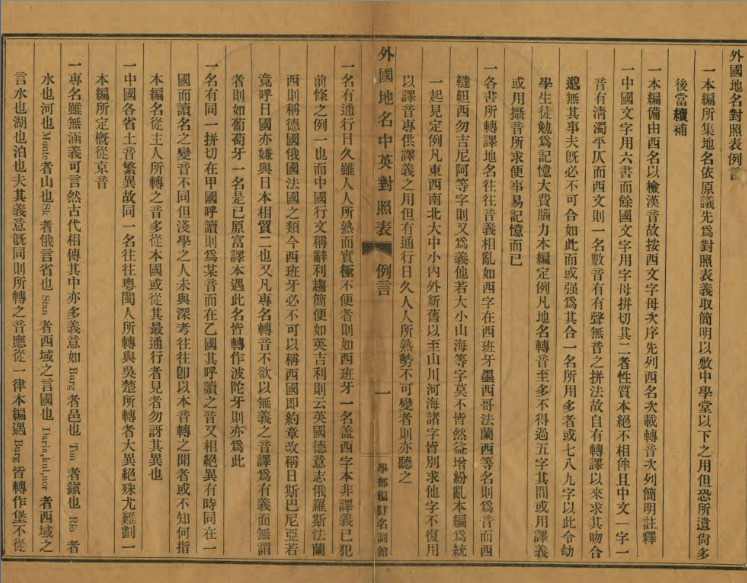 外國地名對照表例言
一本編所集地名依原議先爲對照表義取簡明以敷中學堂以下之用但恐所遺尙多
後當續補
一本編備由西名以檢漢音故按西文字母次序先列西名次載轉音次列簡明註釋
一中國文字用六書而餘國文字用字母拼切其二者性質本絕不相侔且中文一字一
音有淸濁平仄而西文則一名數音有有聲無音之拼法故自有轉譯以來求其吻合
邈無其事夫旣必不可合如此而或强爲其合一名所用多者或七八九字以此令幼
學生徒勉爲記憶大費腦力本編定例凡地名轉音至多不得過五字其間或用譯義
或用攝音所求便事易記憶而已
一各書所轉譯地名往往音義相亂如西字在西班牙墨西哥法蘭西等名則爲音而西
韃靼西勿吉尼阿等字則又爲義他若大小山海等字莫不皆然益增紛亂本編爲統
一起見定例凡東西南北大中小內外新舊以至山川河海諸字皆別求他字不復用
以譯音專供譯義之用但有通行日久人人所熟勢不可變者則亦聽之
外國地名中英對照表
例言
一
學部編訂名詞館
一名有通行日久雖人人所熟而實極不便者則如西班牙一名蓋西字本非譯義已犯
前條之例一也而中國行文稱辭利趨簡便如英吉利則云英國德意志俄羅斯法蘭
西則稱德國俄國法國之類今西班牙必不可以稱西國卽約章改稱日斯巴尼亞若
竟呼日國亦嫌與日本相質二也又凡專名轉音不欲以無義之音譯爲有義而無謂
者則如葡萄牙一名是已原富譯本遇此名皆轉作波陀牙則亦爲此
一名有同一拼切在甲國呼讀則爲某音而在乙國其呼讀之音又相絕異有時同在一
國而讀名之變音不同但淺學之人未與深考往往卽以本音轉之聞者或不知何指
本編名從主人所轉之音多從本國或從其最通行者見者勿訝其異也
一中國各省土音繁異故同一名往往粵閩人所轉與吳楚所轉者大異絕殊尤難劃一
本編所定槪從京音
一專名雖無涵義可言然古代相傳其中亦多義意如 Burg 者邑也 Ton 者鎭也 Rio 者
水也河也 Monte 者山也 Sk 者俄言省也 Stan 者西域之言國也 Daria,kul,nor 者西域之
言水也湖也泊也夫其義意旣同則所轉之音應從一律本編遇 Burg 皆轉作堡不從